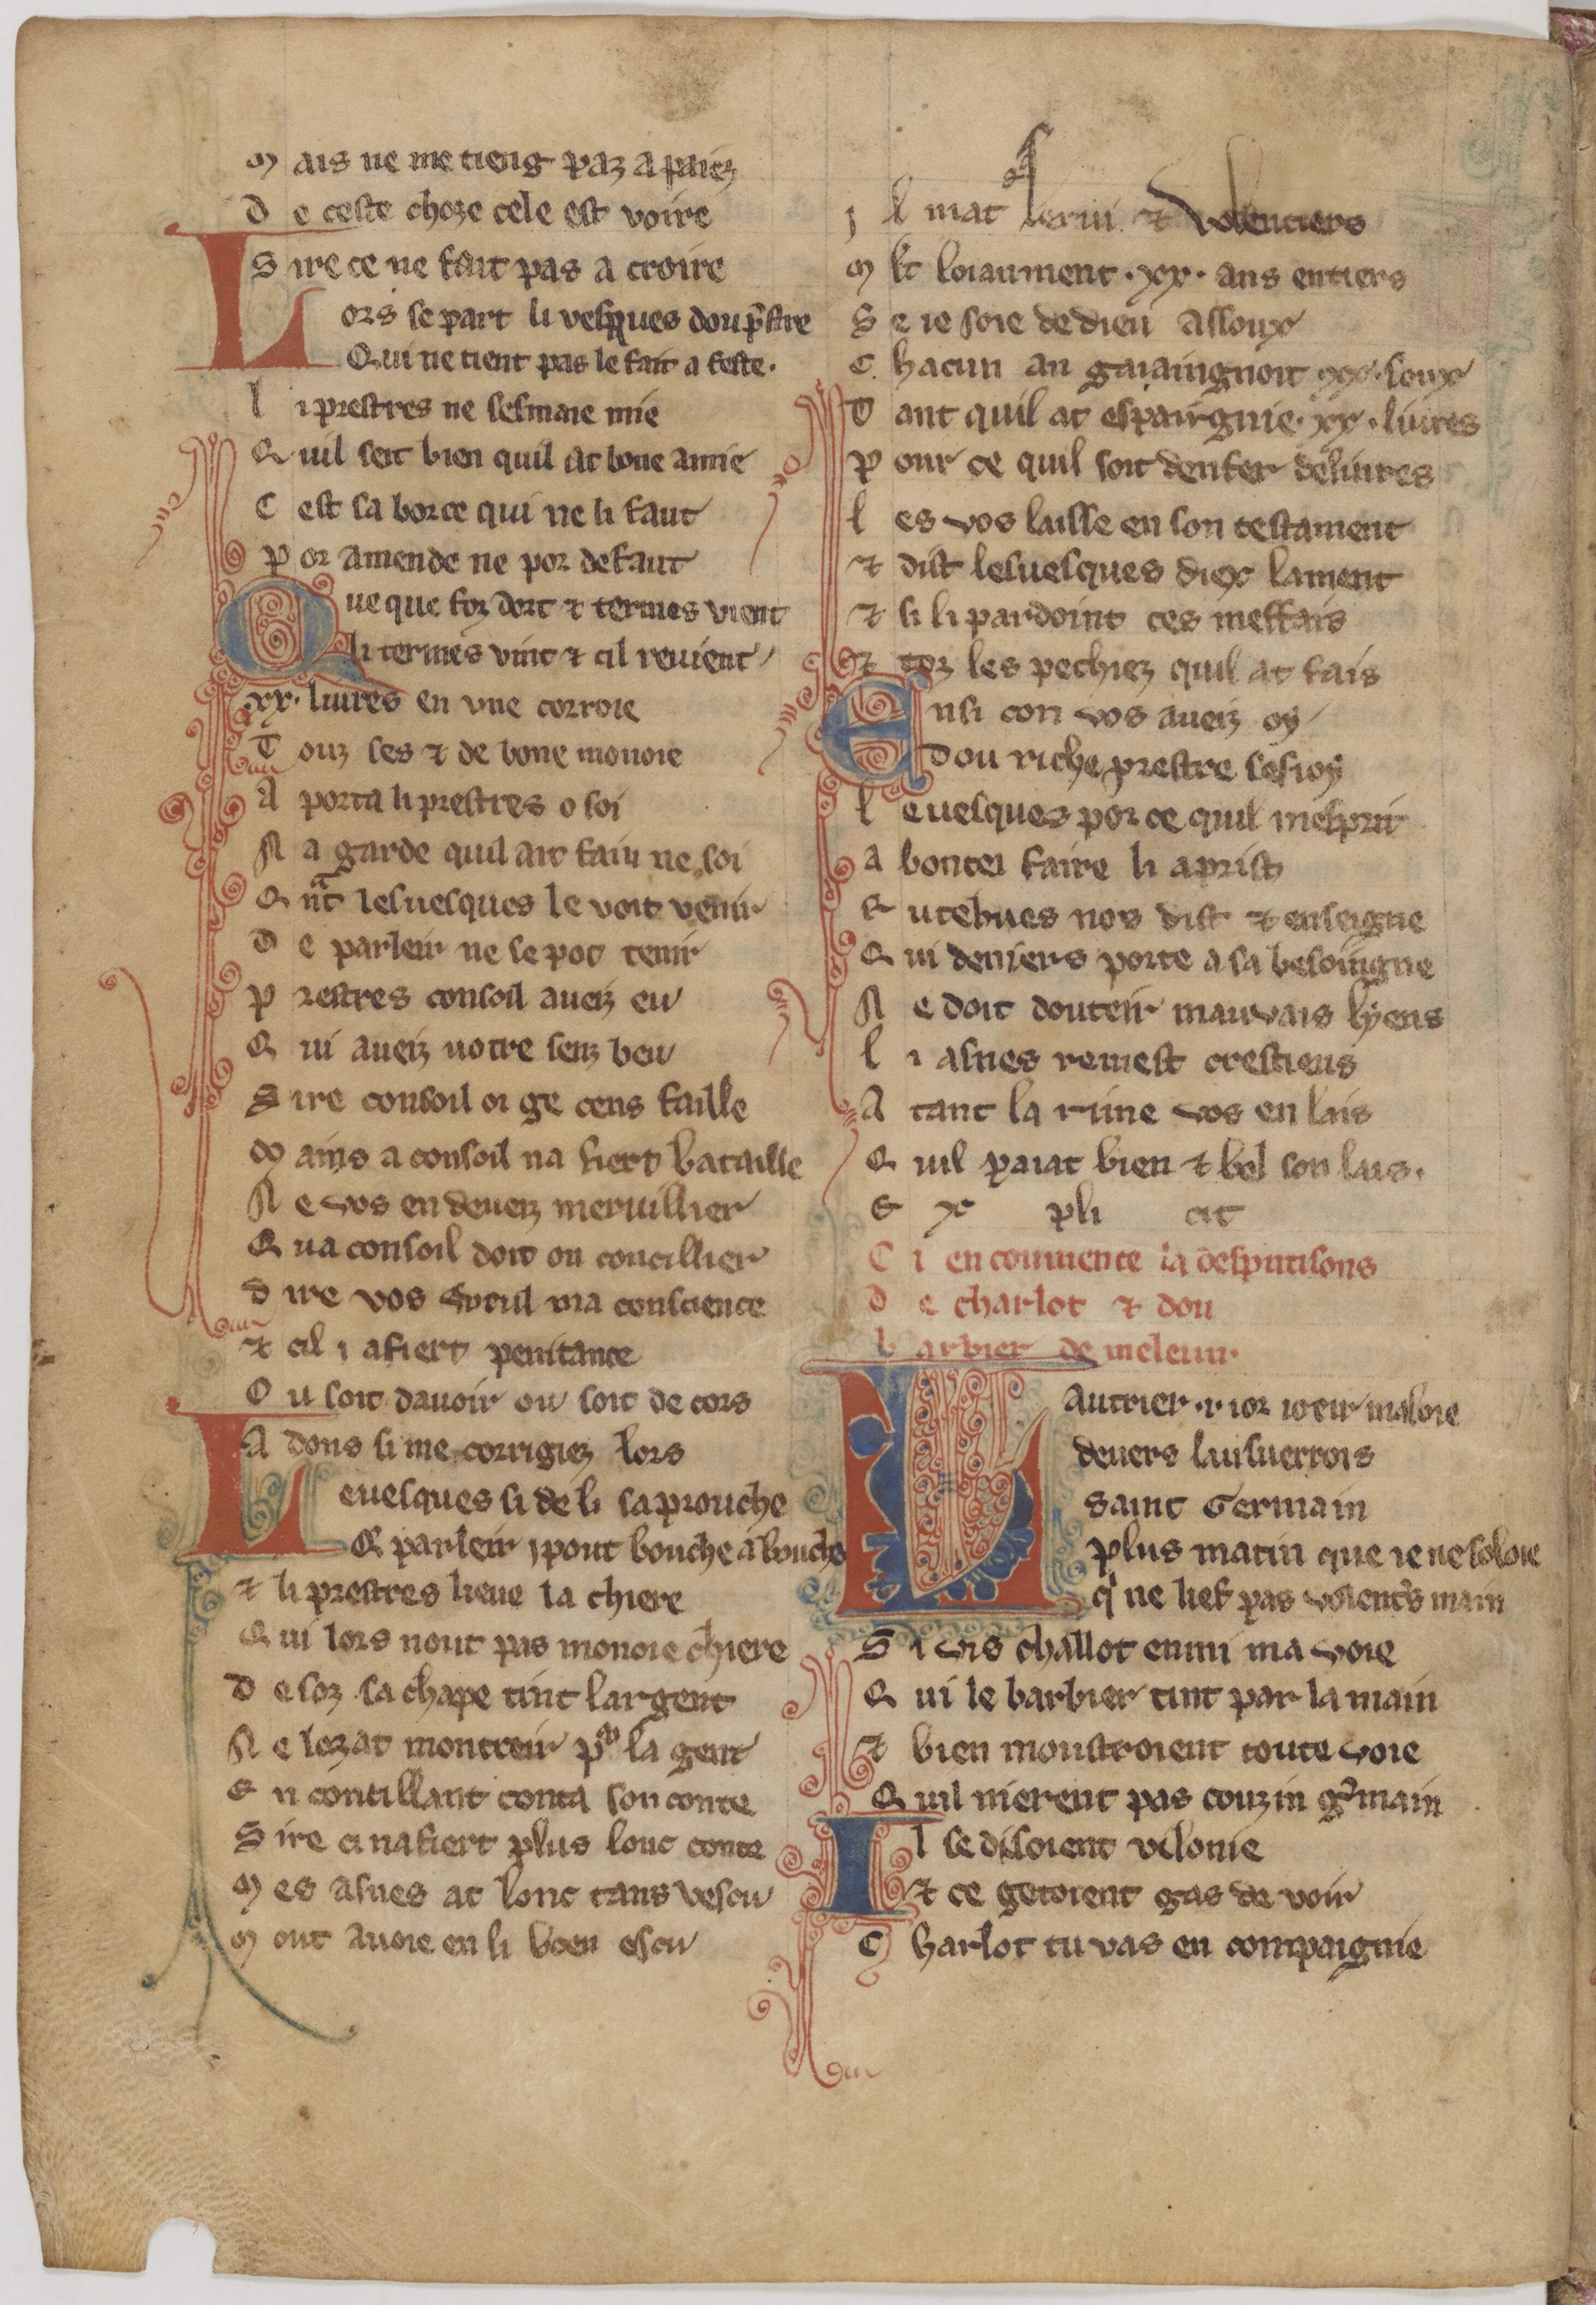 M ais ne me tieng paz a paiez
D e ceste choze cele est voire
S ire ce ne fait pas a croire
L ors se part li vesques dou prestre
Qui ne tient pas le fait a feste.
l i prestres ne sesmaie mie
Q uil seit bien quil at bone amie
C est sa borce qui ne li faut
P or amende ne por defaut
Q ue que foz dort & termes vient
li termes vint & cil revient
xx. livres en une corroie
T ouz ses & de bone monoie
A porta li prestres o soi
N a garde quil ait fain ne soi
Q nt lesuesques le voit venir
D e parleir ne se pot tenir
P restres consoil aueiz eu
Q ui aueiz uotre senz beu
S ire consoil oi ge cens faille
M ains a consoil na fiert bataille
N e vos en deueiz meruillier
Q ua consoil doit on concillier
D ire vos vueul ma conscience
& cil i afiert penitance
O u soit dauoir ou soit de cors
A dons si me corrigiez lors
L euesques si de li saprouche
Q parleir i pout bouche a bouche
& li prestres lieue la chiere
Q ui lors nout pas monoie chiere
D esoz sa chape tint largent
N e lozat montreir por la gent
E n concillant conta son conte
S ire ci nafiert plus lonc conte
M es asnes at lonc tans vescu
M out auoie en li boen escu
I l mat serui & volentiers
M lt loiaument .xx. ans entiers
S e ie soie de dieu assoux
C hacun an gaiaingnoit xx. soux
T ant quil at espairgnie .xx. liures
P our ce quil soit denfer deliures
l es vos laisse en son testament
& dist lesuesques diex lament
& si li pardoint ces meffais
& toz les pechiez quil at fais
E nsi con vos aueiz oy
Dou riche prestre sesioy
L euesques por ce quil mesprit
A bontei faire li aprist
R utebues nos dist & enseigne
Q ui deniers porte a sa besoingne
N e doit douteir mauvais lyens
l i asnes remest crestiens
A tant la rime vos en lais
Q uil paiat bien & bel son lais.
E x pli cit
C i encoumence la desputisons
D e charlot & dou
b arbier de meleun
L autrier .i. ior ioeir maloie
deuers lausuerrois
saint Germain
plus matin que ie ne soloie
q ne lief pas volent's main
S i vis challot enmi ma voie
Q ui le barbier tint par la main
& bien monstroient toute voie
Q uil nierent pas couzin g'main
I l se disoient vilonie
& ce getoient gas de voir
C harlot tu vas en compaignie